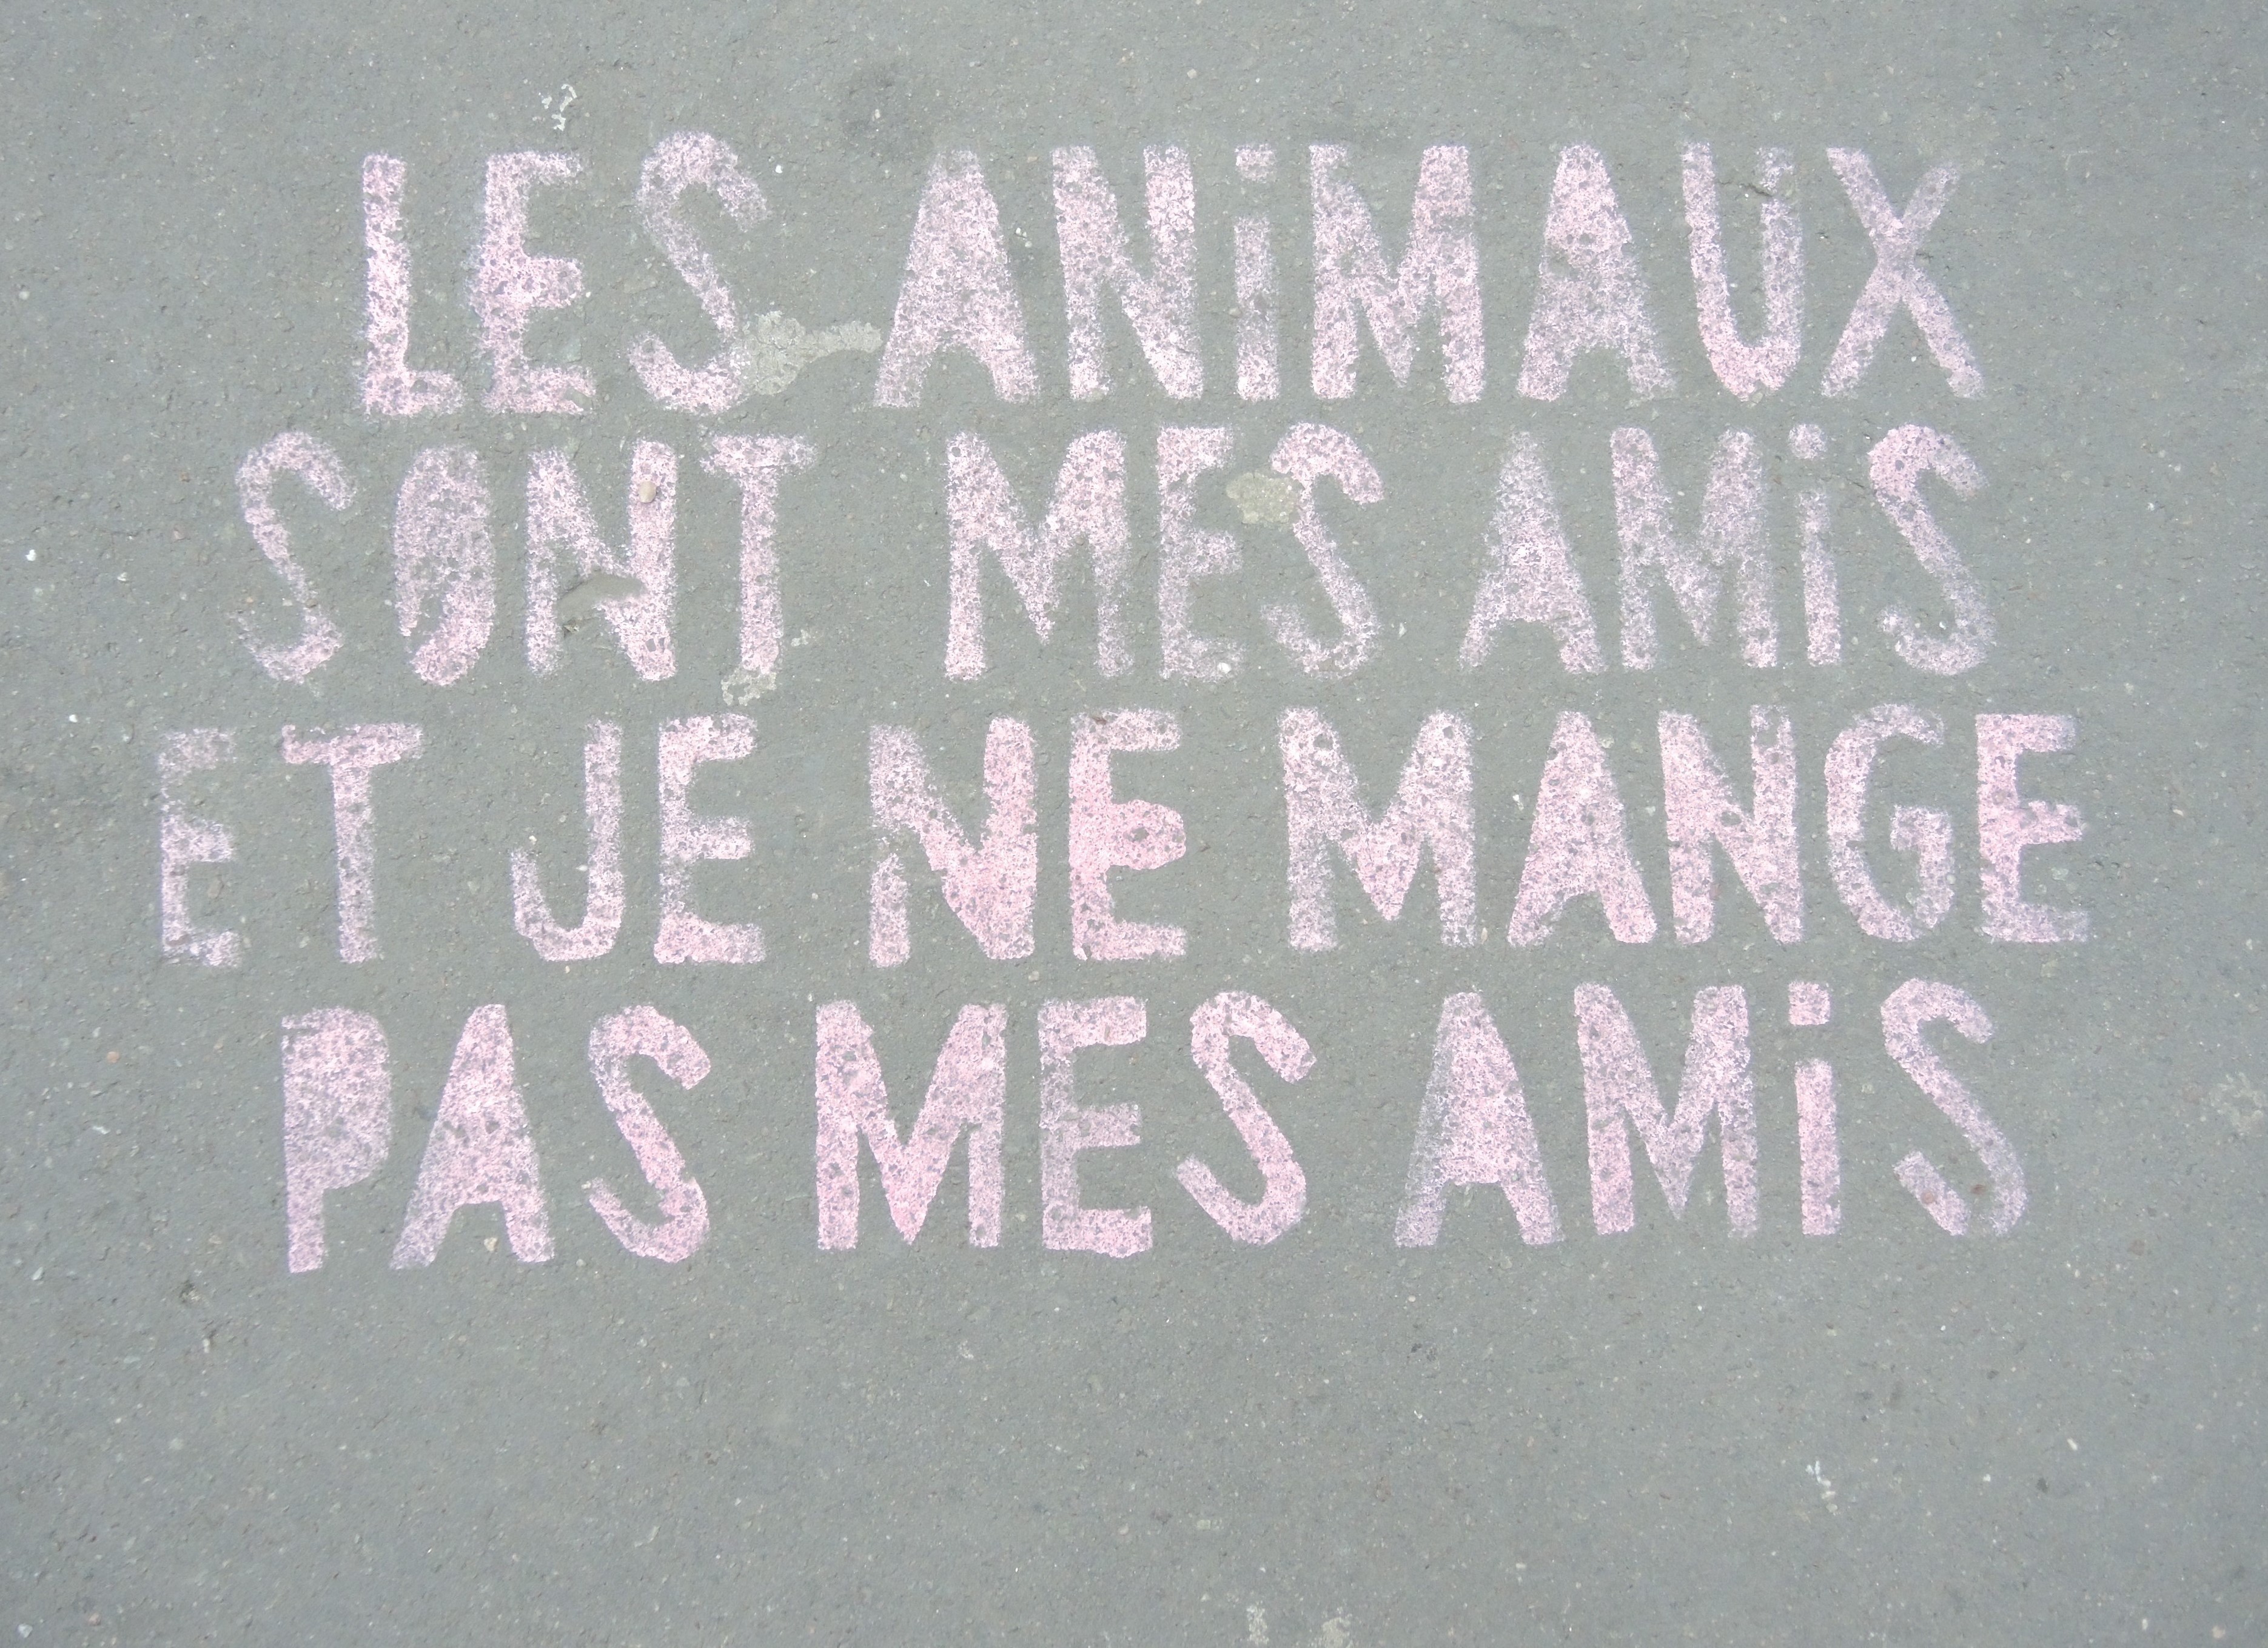 LES ANiMAUX
SONT MES AMiS
ET JE NE MANGE
PAS MES AMiS